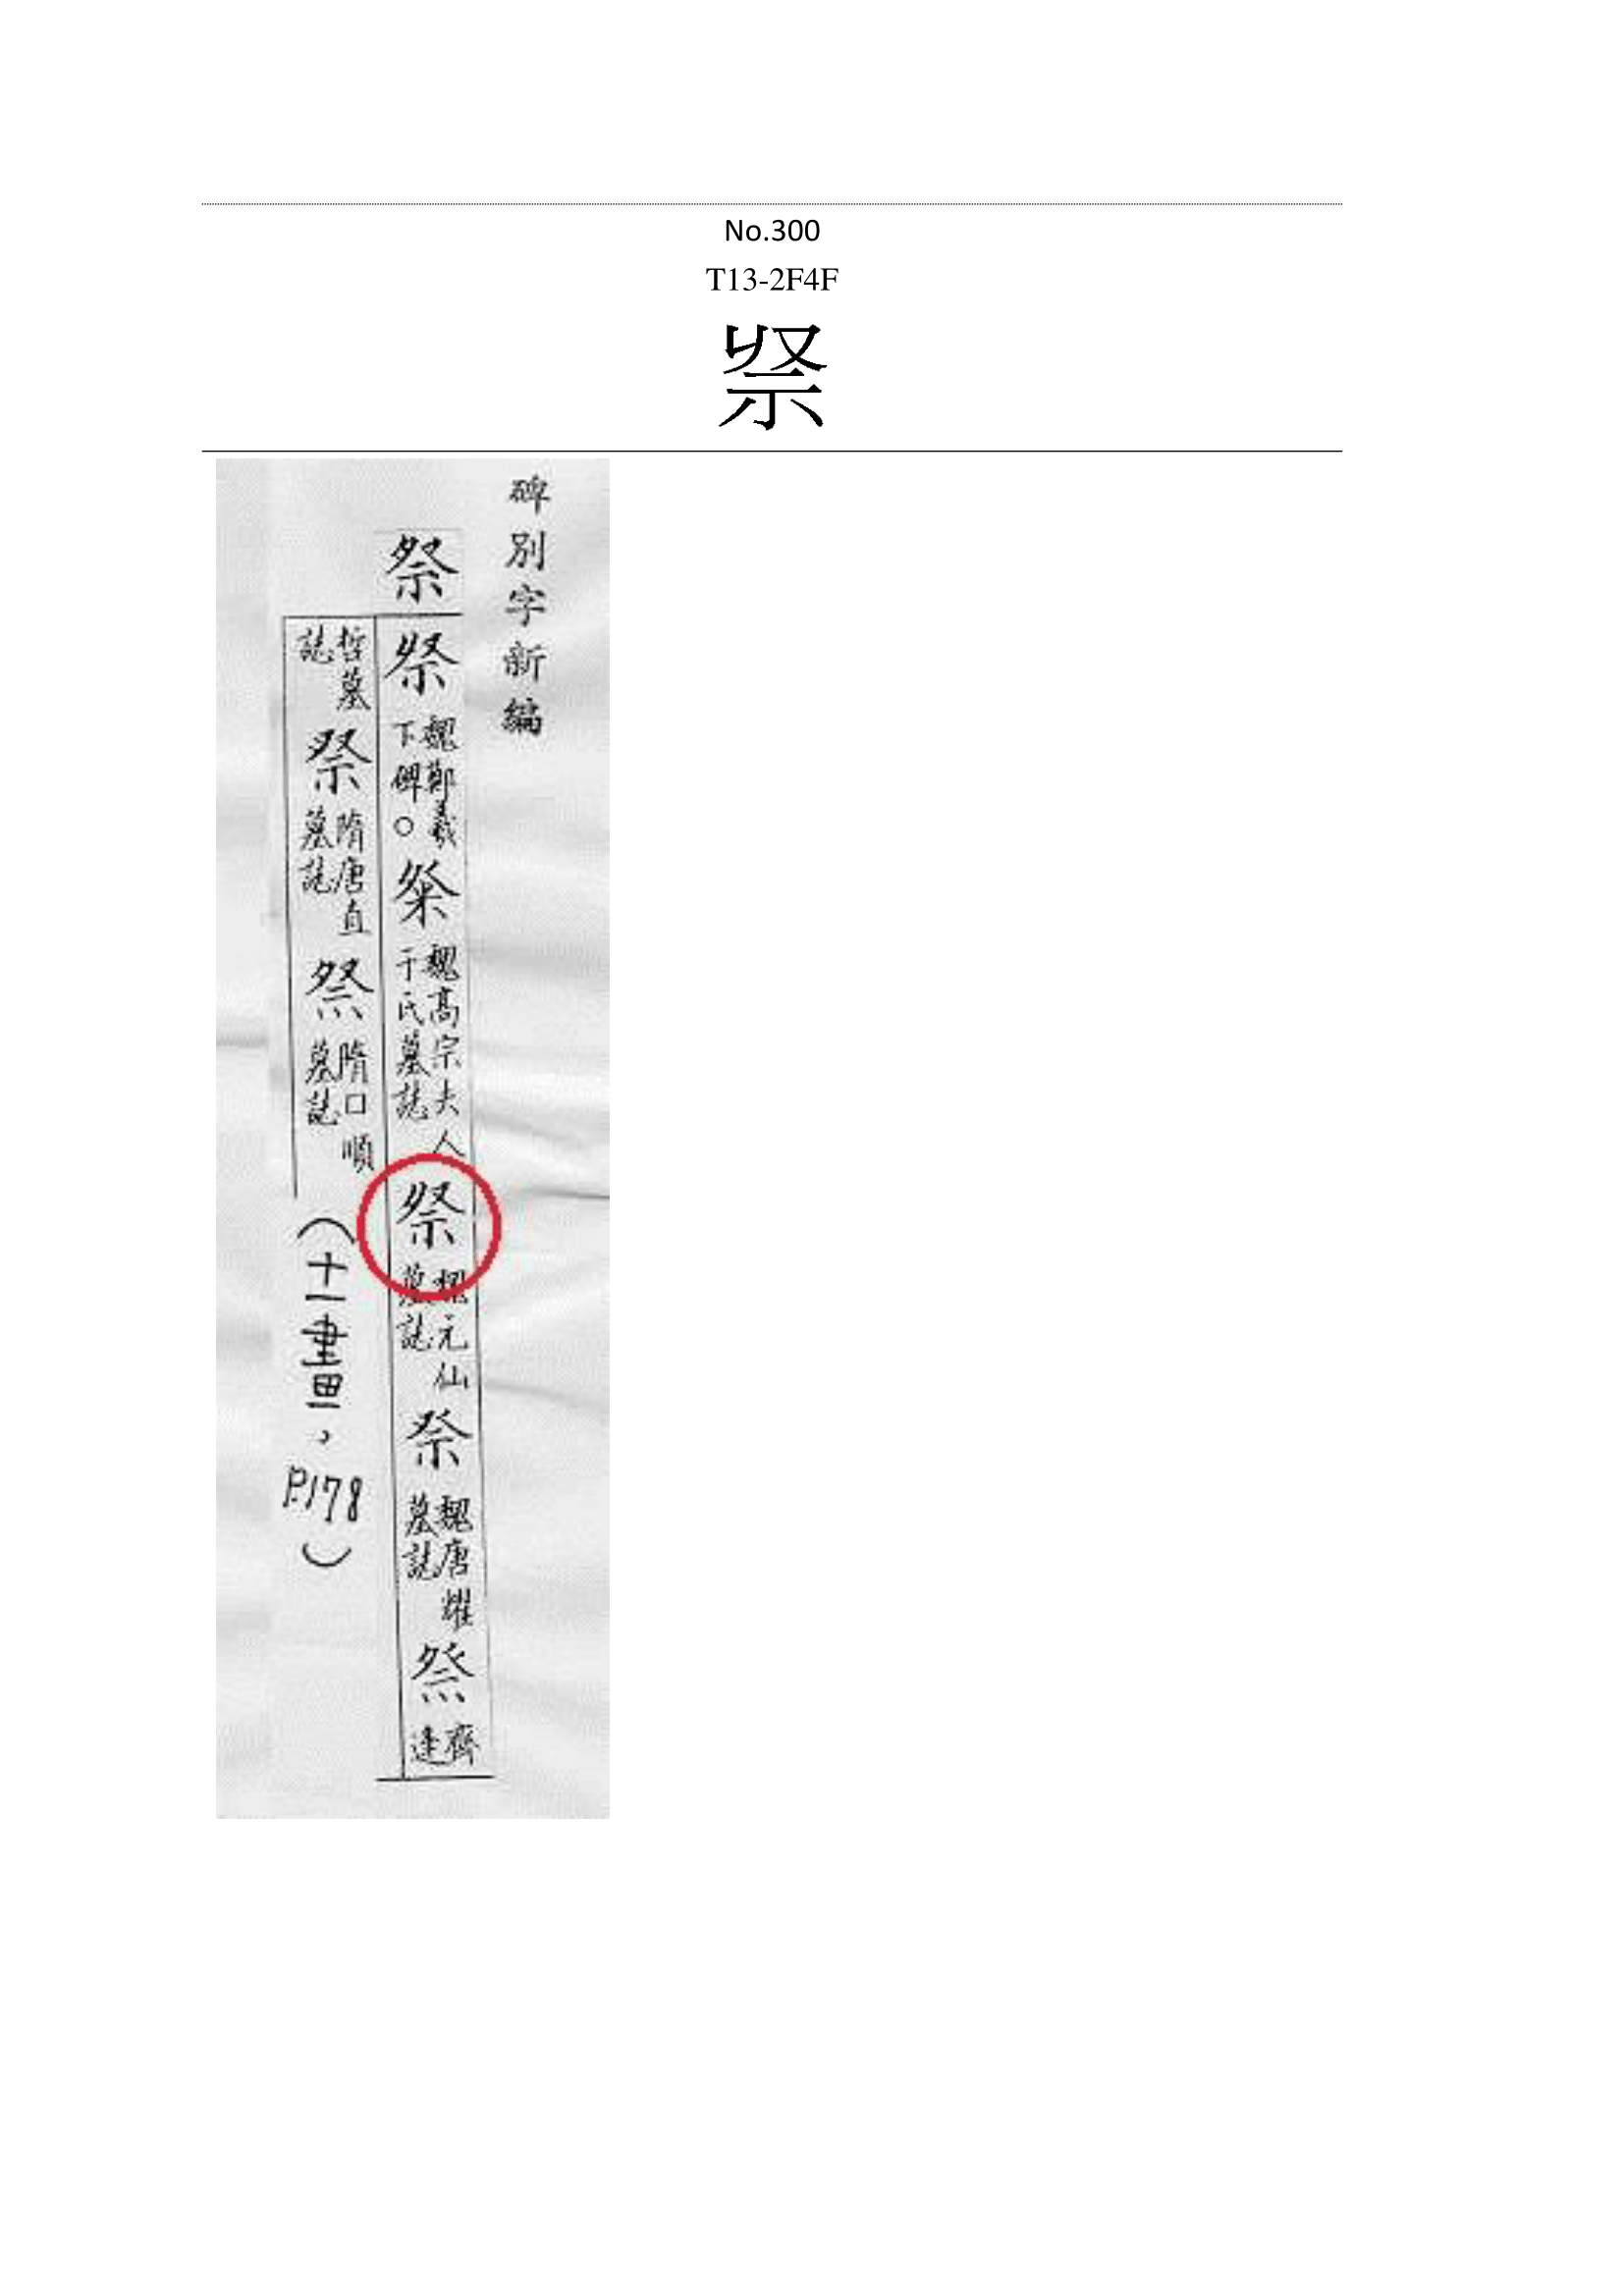 No.300
T13-2F4F
碑別字新編
祭
祭 魏鄭羲下碑○ 祭 魏高宗夫人于氏墓誌 祭 魏元仙墓誌 祭 魏唐耀墓誌 祭 齊逢
哲墓誌 祭 隋唐直墓誌 祭 隋口順墓誌
(十一畫,P.178)